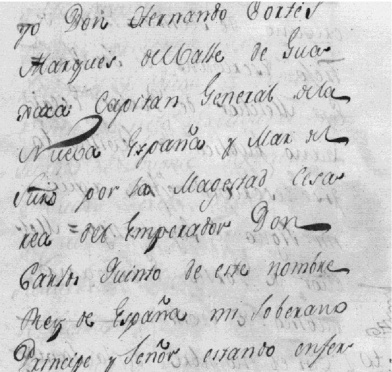 yo Don Hernando Cortés
Marques. del Valle de Gua
xaca Capitan General de la
Nueva España y Mar del
Sur por la Magestad Cesa
rea = del Emperador Don
Carlos Quinto de este nombre
Rey de España mi Soberano
Principe y Señor estando enfer